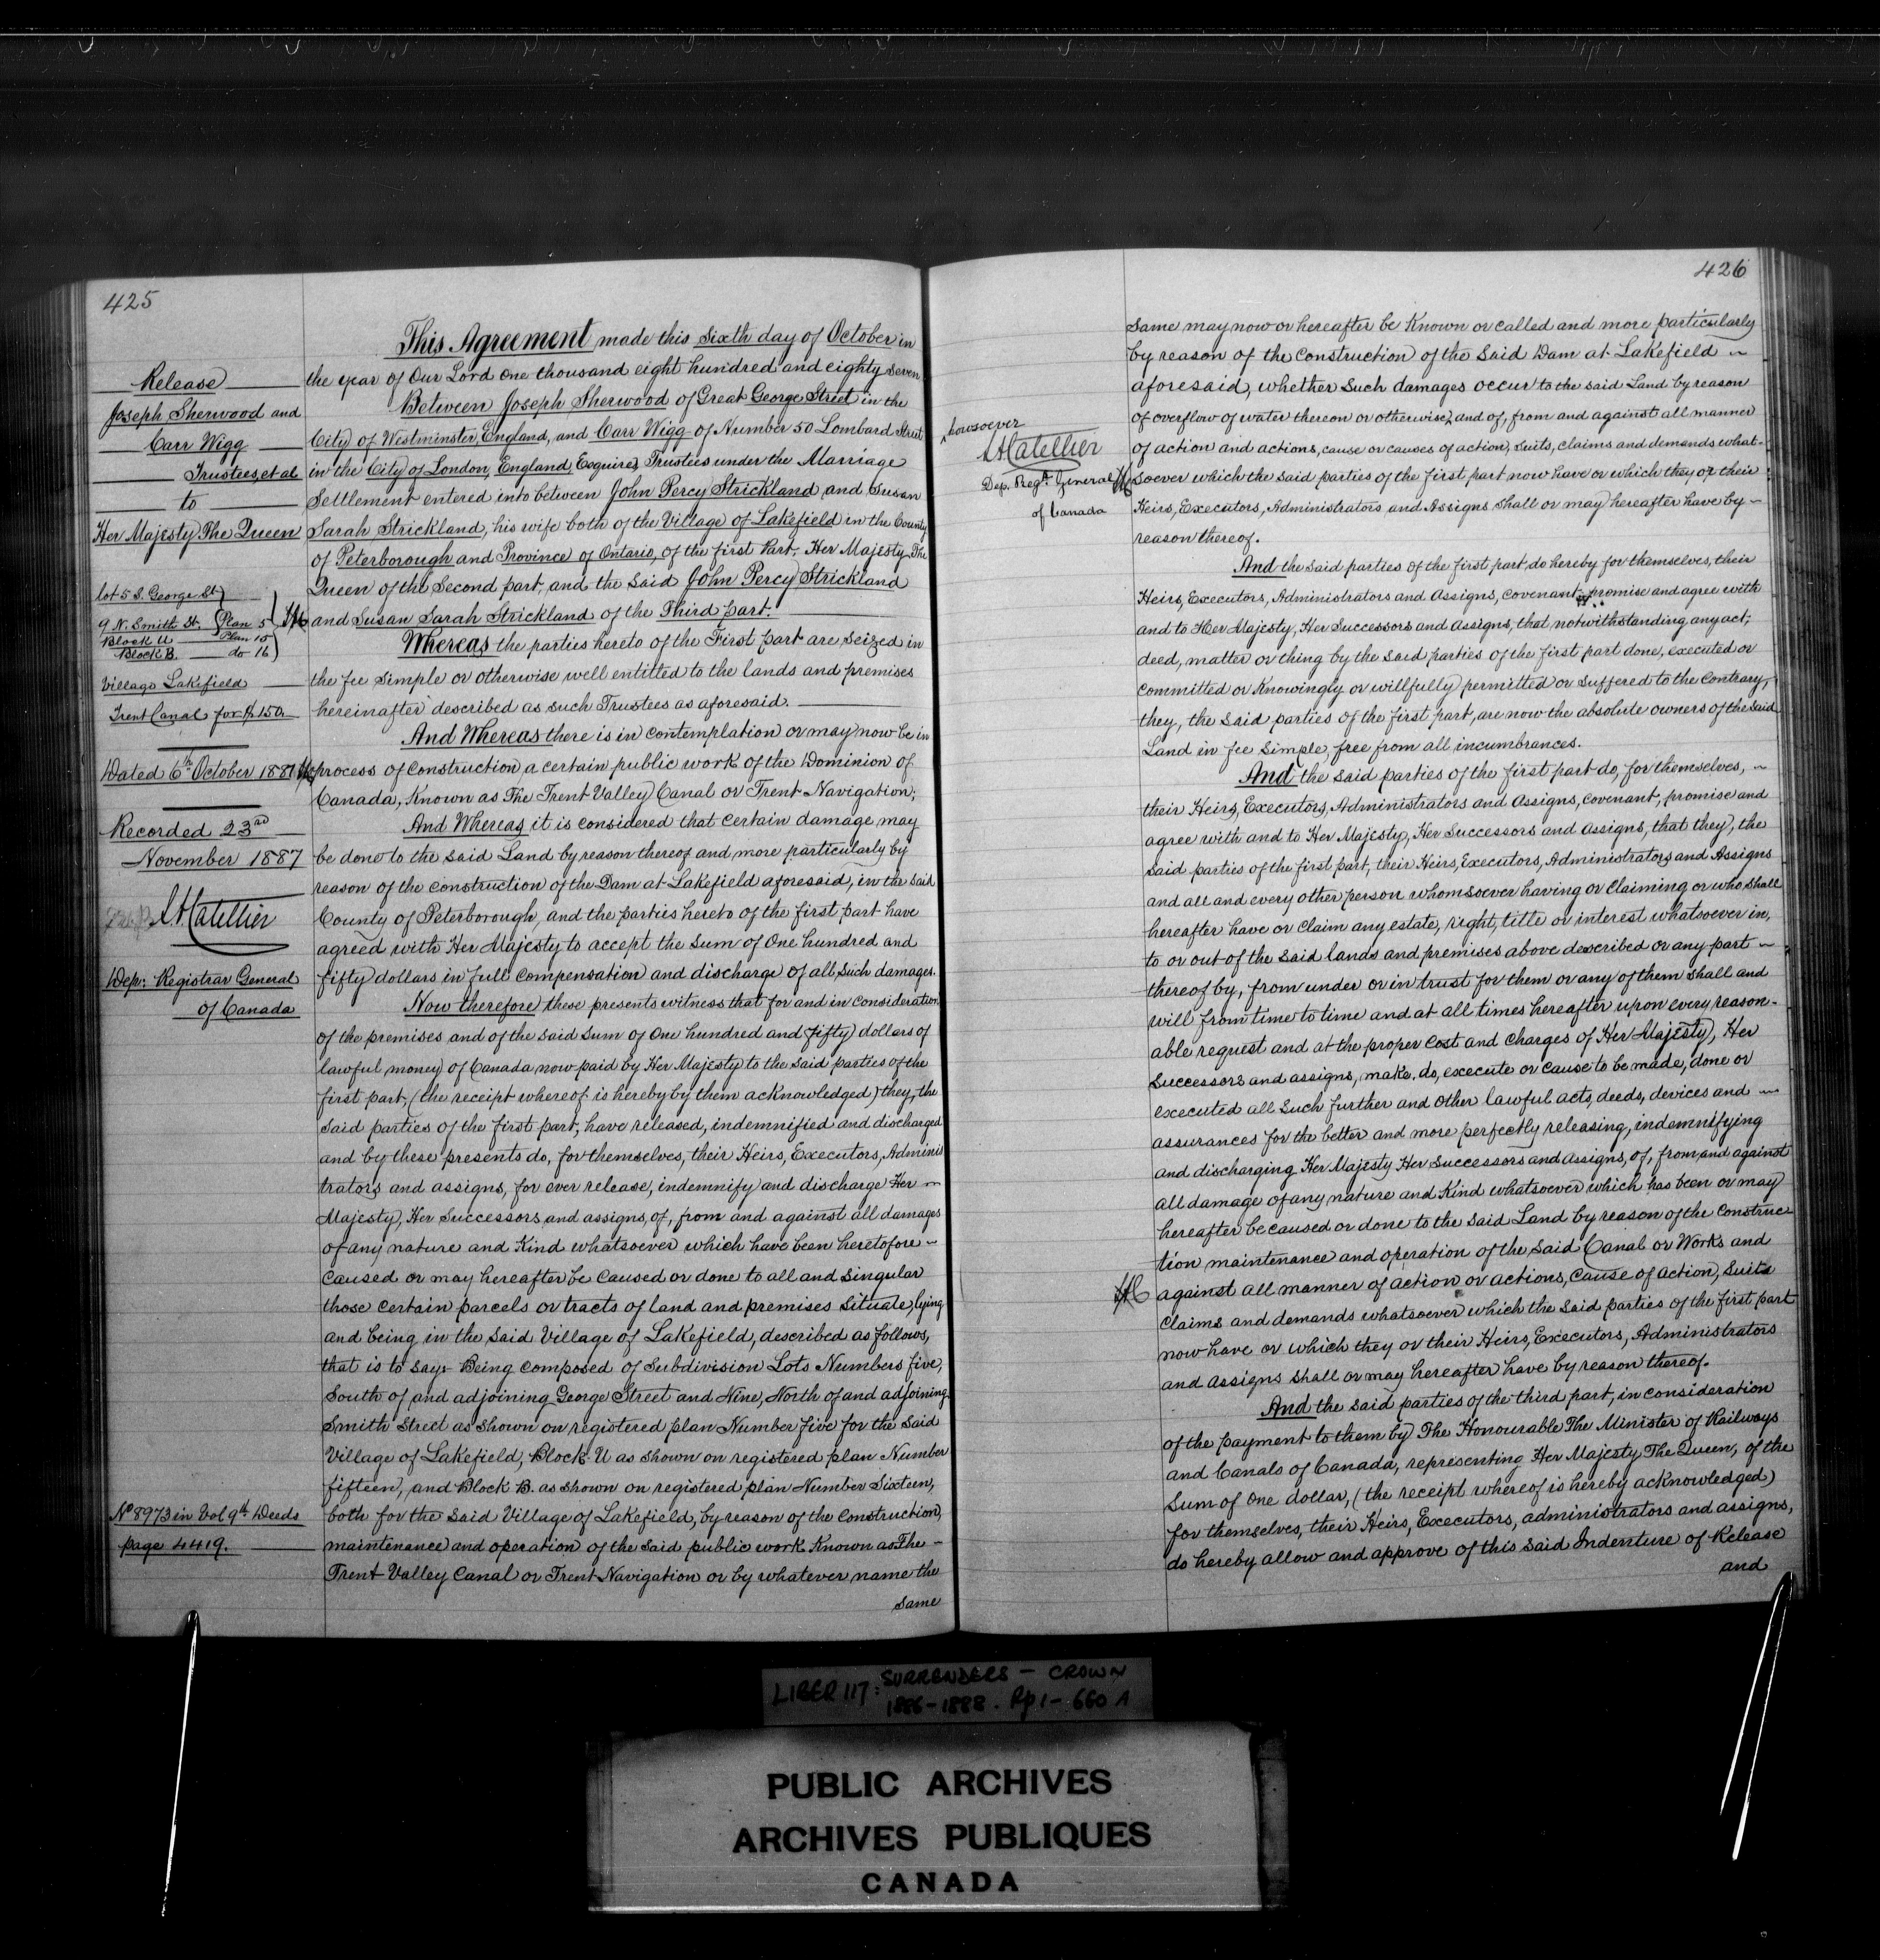 425
Release
Joseph Sherwood and
Carr Wigg
Trustees, et al
to
Her Majesty The Queen
lot 5 S. George St
9 N. Smith St. Plan 5
Block U Plan 15
Block B. do 16
Village Lakefield
Trent Canal for $150
Dated 6th October 1887
Recorded 23rd
November 1887
Dep: Registrar General
of Canada
No 8973 in Vol 9th Deeds
page 4419.
This Agreement made this Sixth day of October in
the year of Our Lord one thousand eight hundred and eighty seven
Between Joseph Sherwood of Great George Street in the
City of Westminster, England, and Carr Wigg of Number 50 Lombard Street
in the City of London, England, Esquires, Trustees under the Marriage
Settlement entered into between John Percy Strickland and Susan
Sarah Strickland, his wife both of the Village of Lakefield in the County
of Peterborough and Province of Ontario, of the first Part, Her Majesty The
Queen of the Second part, and the said John Percy Strickland
and Susan Sarah Strickland of the Third part.
Whereas the parties hereto of the First part are seized in
the fee simple or otherwise well entitled to the lands and premises
hereinafter described as such Trustees as aforesaid.
And Whereas there is in contemplation or may now be in
process of construction a certain public work of the Dominion of
Canada, Known as The Trent Valley Canal or Trent Navigation;
And Whereas it is considered that certain damage may
be done to the said Land by reason thereof and more particularly by
reason of the construction of the Dam at Lakefield aforesaid, in the said
County of Peterborough, and the parties hereto of the first part have
agreed with Her Majesty to accept the sum of One hundred and
fifty dollars in full compensation and discharge of all such damages.
Now therefore these presents witness that for and in consideration
of the premises and of the said Sum of One hundred and fifty dollars of
lawful money of Canada now paid by Her Majesty to the said parties of the
first part, (the receipt whereof is hereby by them acknowledged) they, the
said parties of the first part, have released, indemnified and discharged
and by these presents do, for themselves, their Heirs, Executors, Adminis
trators and assigns, for ever release, indemnify and discharge Her
Majesty, Her Successors and assigns, of, from and against all damages
of any nature and Kind whatsoever which have been heretofore
caused or may hereafter be caused or done to all and singular
those certain parcels or tracts of land and premises situate, lying
and being in the said Village of Lakefield, described as follows,
that is to say: Being composed of subdivision Lots Numbers five,
South of and adjoining George Street and Nine, North of and adjoining
Smith Street as shown on registered plan Number five for the said
Village of Lakefield, Block U as shown on registered plan Number
fifteen, and Block B. as shown on registered plan Number Sixteen,
both for the said Village of Lakefield, by reason of the construction,
maintenance and operation of the said public work Known as The
Trent Valley Canal or Trent Navigation or by whatever name the
same
426
howsoever
Dep. Regr. General
of Canada
same may now or hereafter be Known or called and more particularly
by reason of the construction of the said Dam at Lakefield
aforesaid, whether such damages occur to the said Land by reason
of overflow of water thereon or otherwise, and of, from and against all manner
of action and actions, cause or causes of action, suits, claims and demands what-
soever which the said parties of the first part now have or which they or their
Heirs, Executors, Administrators and Assigns shall or may hereafter have by
reason thereof.
And the said parties of the first part, do hereby for themselves, their
Heirs, Executors, Administrators and Assigns, covenant, promise and agree with
and to Her Majesty, Her Successors and Assigns, that notwithstanding any act,
deed, matter or thing by the said parties of the first part done, executed or
committed or knowingly or willfully permitted or suffered to the contrary,
they, the said parties of the first part, are now the absolute owners of the said
Land in fee simple, free from all incumbrances.
And the said parties of the first part do, for themselves,
their Heirs, Executors, Administrators and Assigns, covenant, promise and
agree with and to Her Majesty, Her Successors and Assigns, that they, the
said parties of the first part, their Heirs, Executors, Administrators and Assigns
and all and every other person whomsoever having or claiming or who shall
hereafter have or claim any estate, right, title or interest whatsoever in,
to or out of the said lands and premises above described or any part
thereof by, from under or in trust for them or any of them shall and
will from time to time and at all times hereafter upon every reason-
able request and at the proper cost and charges of Her Majesty, Her
Successors and assigns, make, do, execute or cause to be made, done or
executed all such further and other lawful acts, deeds, devices and
assurances for the better and more perfectly releasing, indemnifying
and discharging Her Majesty Her Successors and Assigns, of, from, and against
all damage of any nature and Kind whatsoever which has been or may
hereafter be caused or done to the said Land by reason of the Construc
tion maintenance and operation of the said Canal or Works and
against all manner of action or actions, cause of action, suits
claims and demands whatsoever which the said parties of the first part
now have or which they or their Heirs, Executors, Administrators
and Assigns shall or may hereafter have by reason thereof.
And the said parties of the third part, in consideration
of the payment to them by The Honourable The Minister of Railways
and Canals of Canada, representing Her Majesty The Queen, of the
Sum of one dollar, (the receipt whereof is hereby acknowledged)
for themselves, their Heirs, Executors, administrators and assigns,
do hereby allow and approve of this said Indenture of Release
and
LIBER 117: SURRENDERS - CROWN
1886-1888. Pp 1-660 A
PUBLIC ARCHIVES
ARCHIVES PUBLIQUES
CANADA